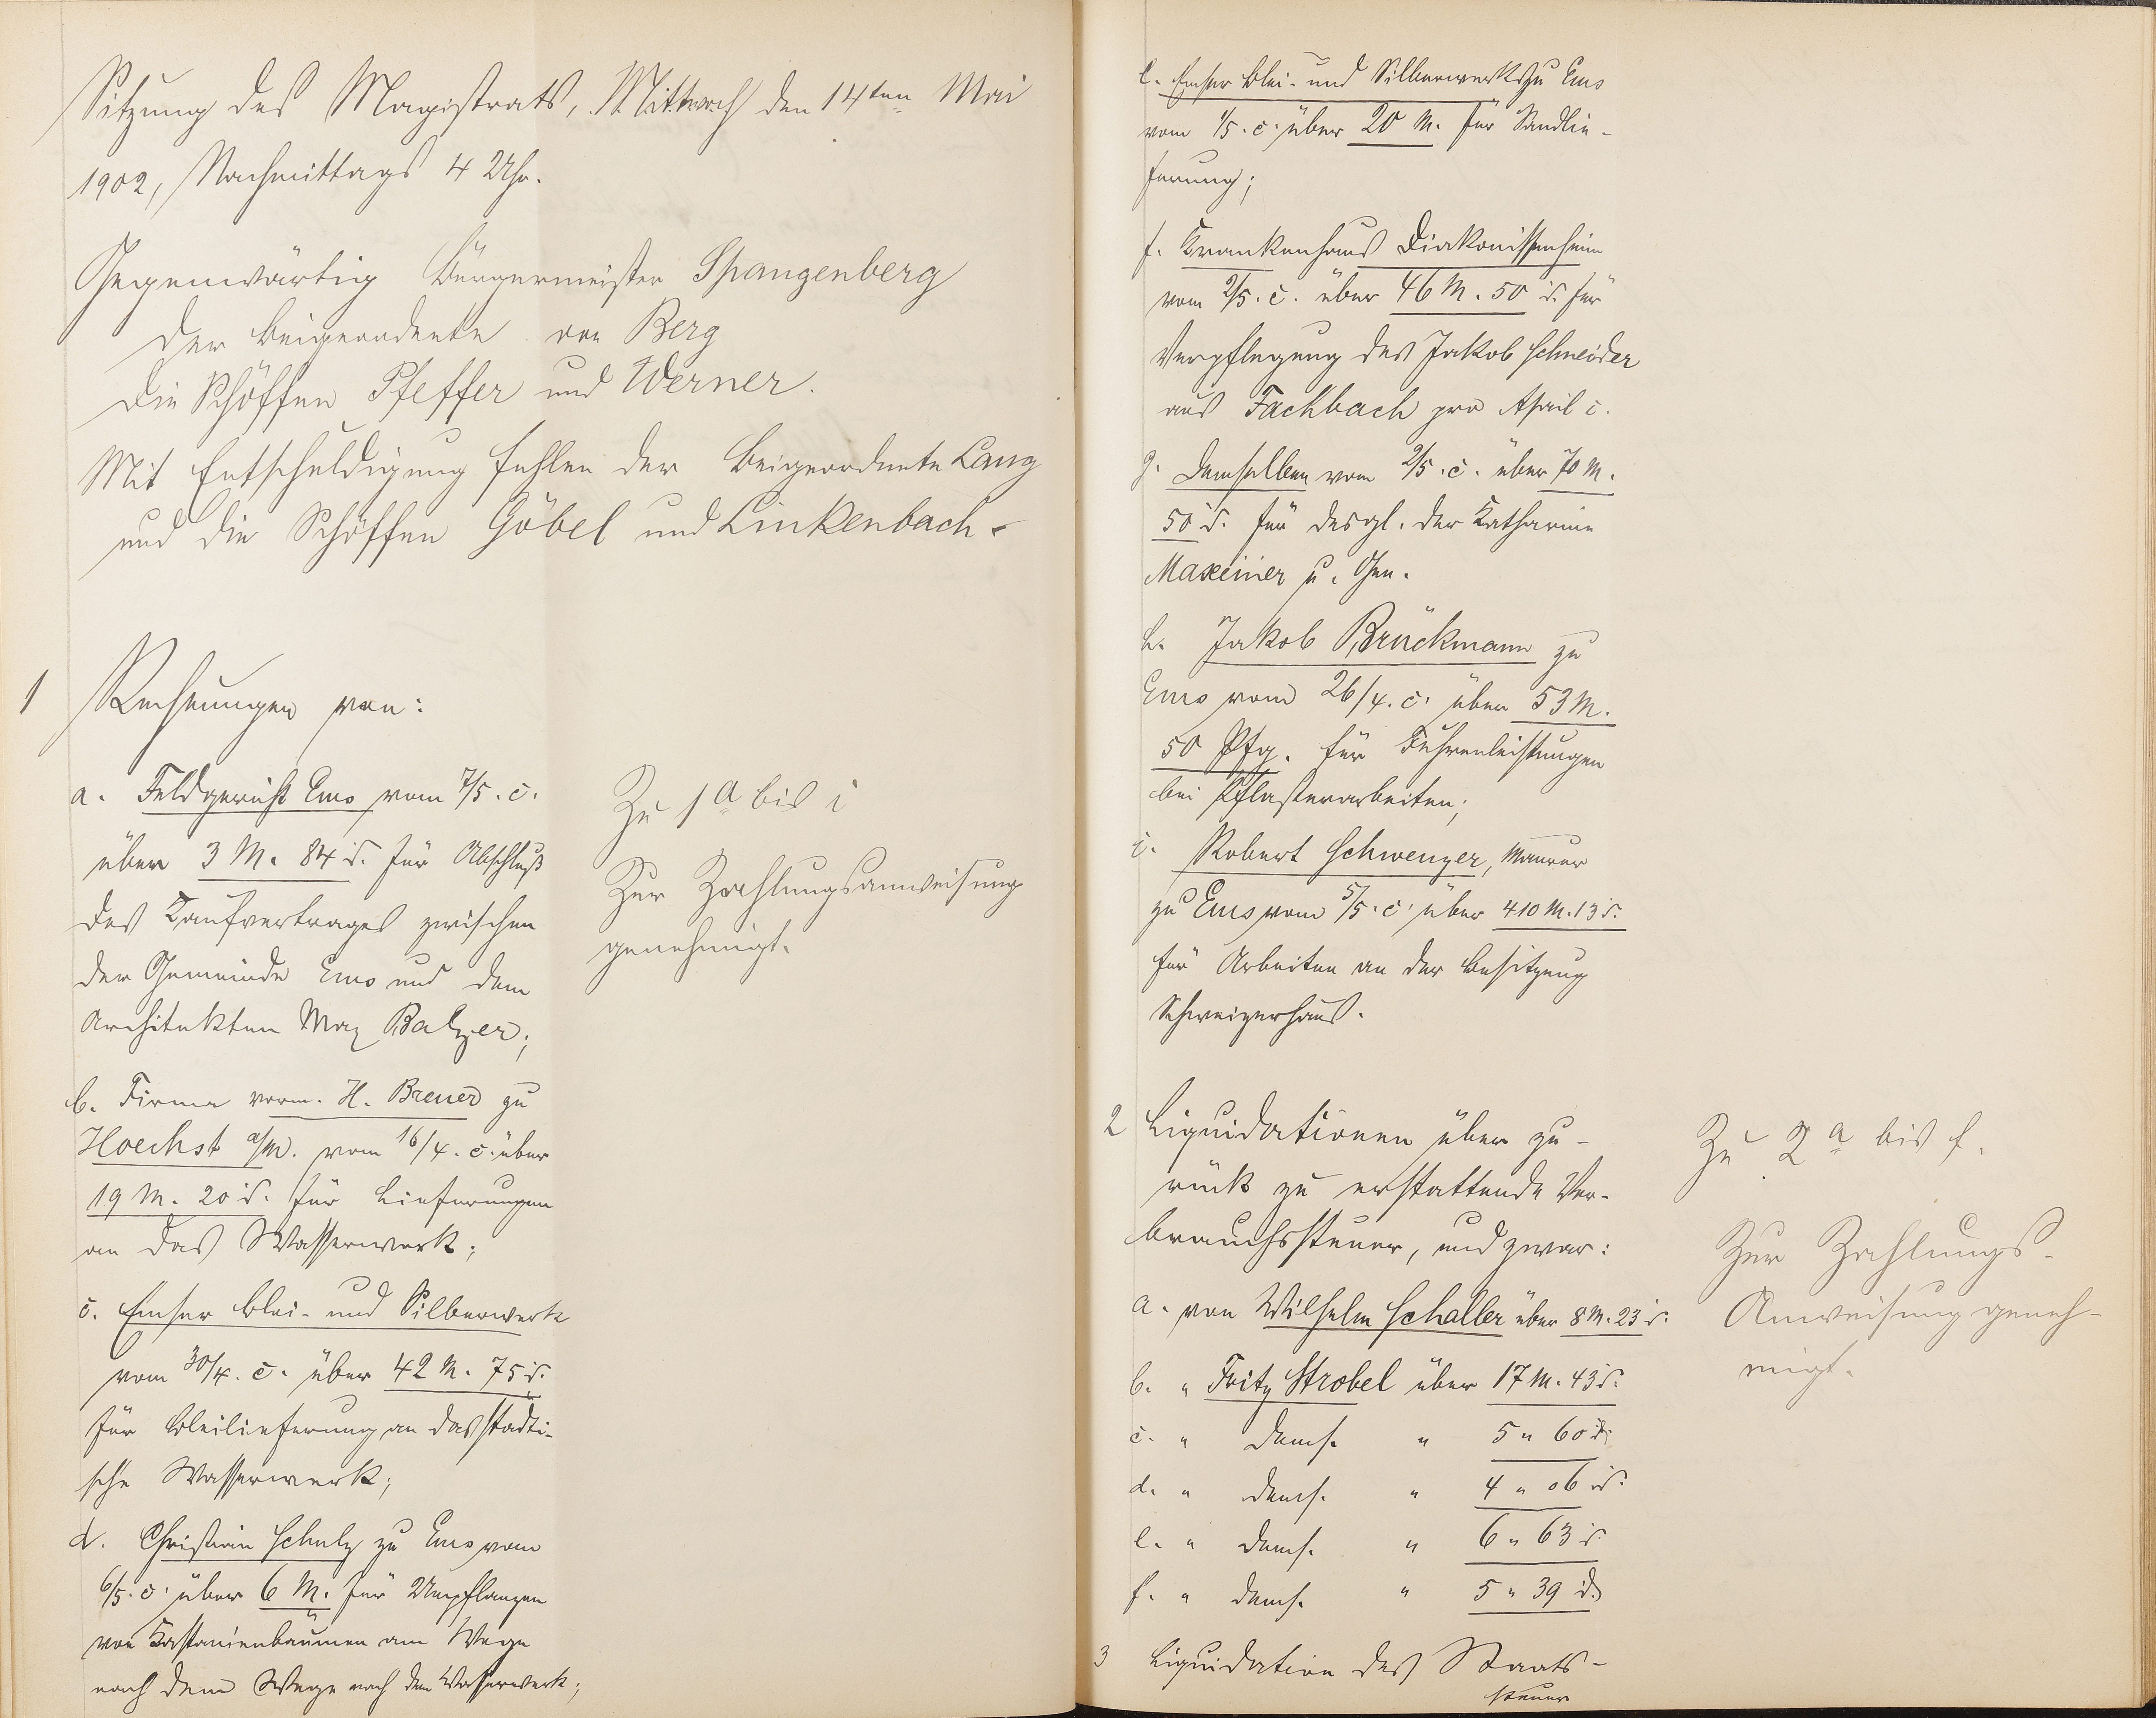 Sitzung des Magistrats, Mittwoch den 14ten Mai
1902, Nachmittags 4 Uhr.
Gegenwärtig Bürgermeister Spangenberg
der Beigeordnete von Berg
die Schöffen Pfeffer und Werner.
Mit Entschuldigung fehlen der Beigeordnete Lang
und die Schöffen Göbel und Linkenbach.
1 Rechnungen von:
a. Feldgericht Ems vom 7/5. c.
über 3 M. 84 d. für Abschluß
des Kaufvertrages zwischen
der Gemeinde Ems und dem
Architekten Max Balzer;
b. Firma vorm. H. Breuer zu
Hoechst a/M. vom 16/4. c. über
19 M. 20 d. für Lieferungen
an das Wasserwerk;
c. Emser Blei- und Silberwerk
vom 30/4. c. über 42 M. 75 d.
für Bleilieferung an das städti-
sche Wasserwerk;
d. Christian Schulz zu Ems vom
6/5. c. über 6 M. für Umpflanzen
von Kastanienbäumen am Wege
nach dem Wege nach dem Wasserwerk;
Zu 1 a bis i
Zur Zahlungsanweisung
genehmigt.
e. Emser Blei- und Silberwerk zu Ems
vom 1/5. c. über 20 M. für Sandlie-
ferung;
f. Krankenhaus Diakonissenheim
vom 2/5. c. über 46 M. 50 d. für
Verpflegung des Jakob Schneider
aus Fachbach pro April c.
g. Demselben vom 2/5. c. über 70 M.
50 d. für desgl. der Katharine
Maxeiner u. Gen.
h. Jakob Brückmann zu
Ems vom 26/4. c. über 53 M.
50 Pfg. für Fuhrenleistungen
bei Pflasterarbeiten;
i. Robert Schwenzer, Maurer
zu Ems vom 5/5. c. über 410 M. 13 d.
für Arbeiten an der Besitzung
Schweizerhaus.
2 Liquidationen über zu-
rück zu erstattende Ver-
brauchssteuer, und zwar:
a. von Wilhelm Schaller über 8 M. 23 d.
b. " Fritz Strobel über 17 M. 43 d.
c. " dems. " 5 " 60 d.
d. " dems. " 4 " 06 d.
e. " dems. " 6 " 63 d.
f. " dems. " 5 " 39 d.
Zu 2 a bis f.
Zur Zahlungs-
Anweisung geneh-
migt.
3 Liquidation des Staats-
steuer